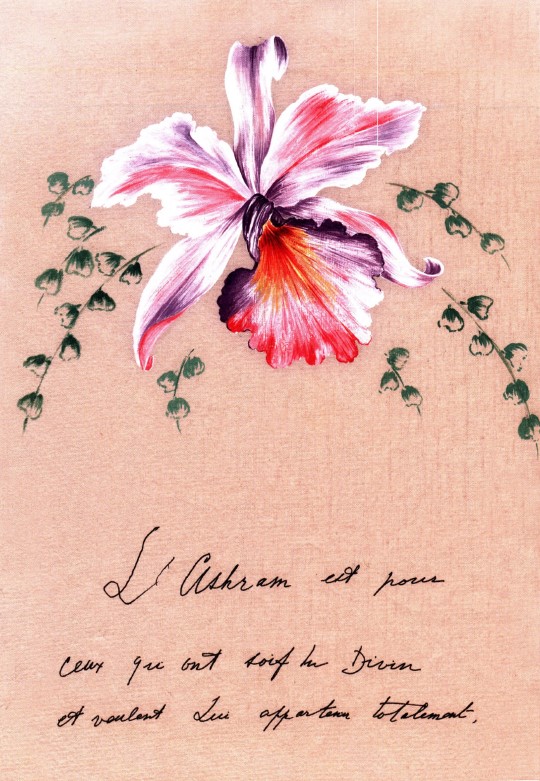 L'Ashram est pour
ceux qui ont soif du Divin
et veulent Lui appartenir totalement.